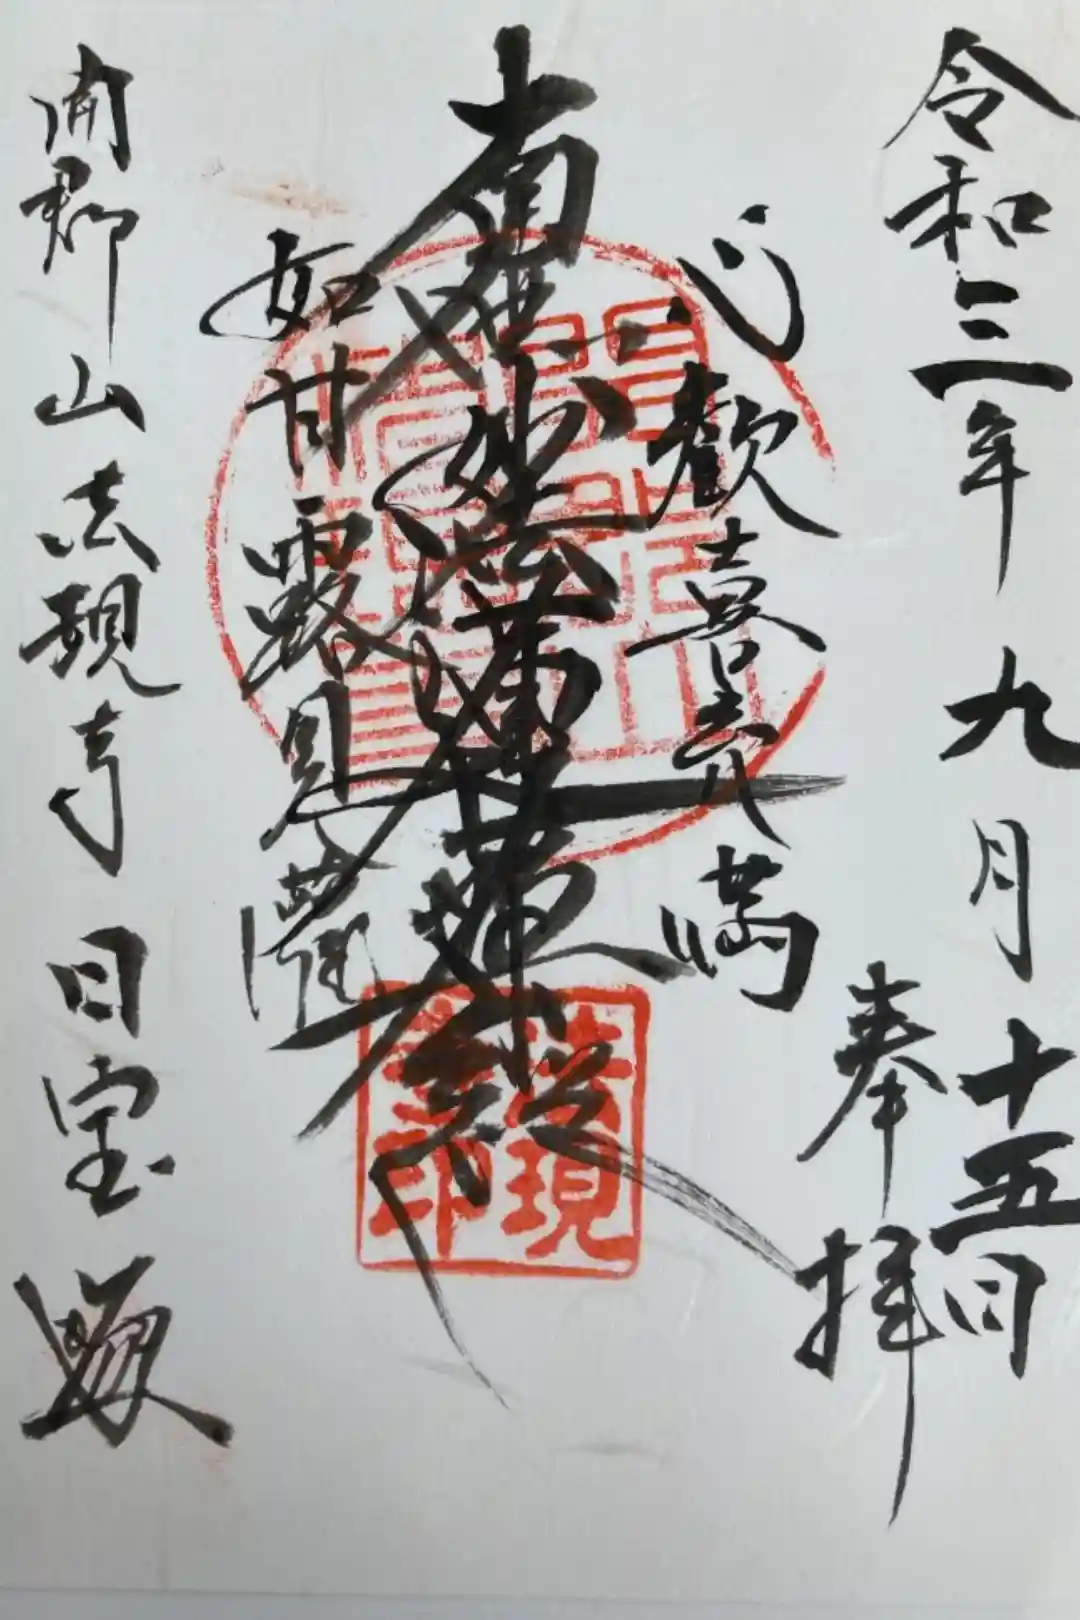 令和三年九月十五日
奉拝
心大歓喜充満
南無妙法蓮華経
如甘露見灌
開郡山法現寺日宝
法現
寺印